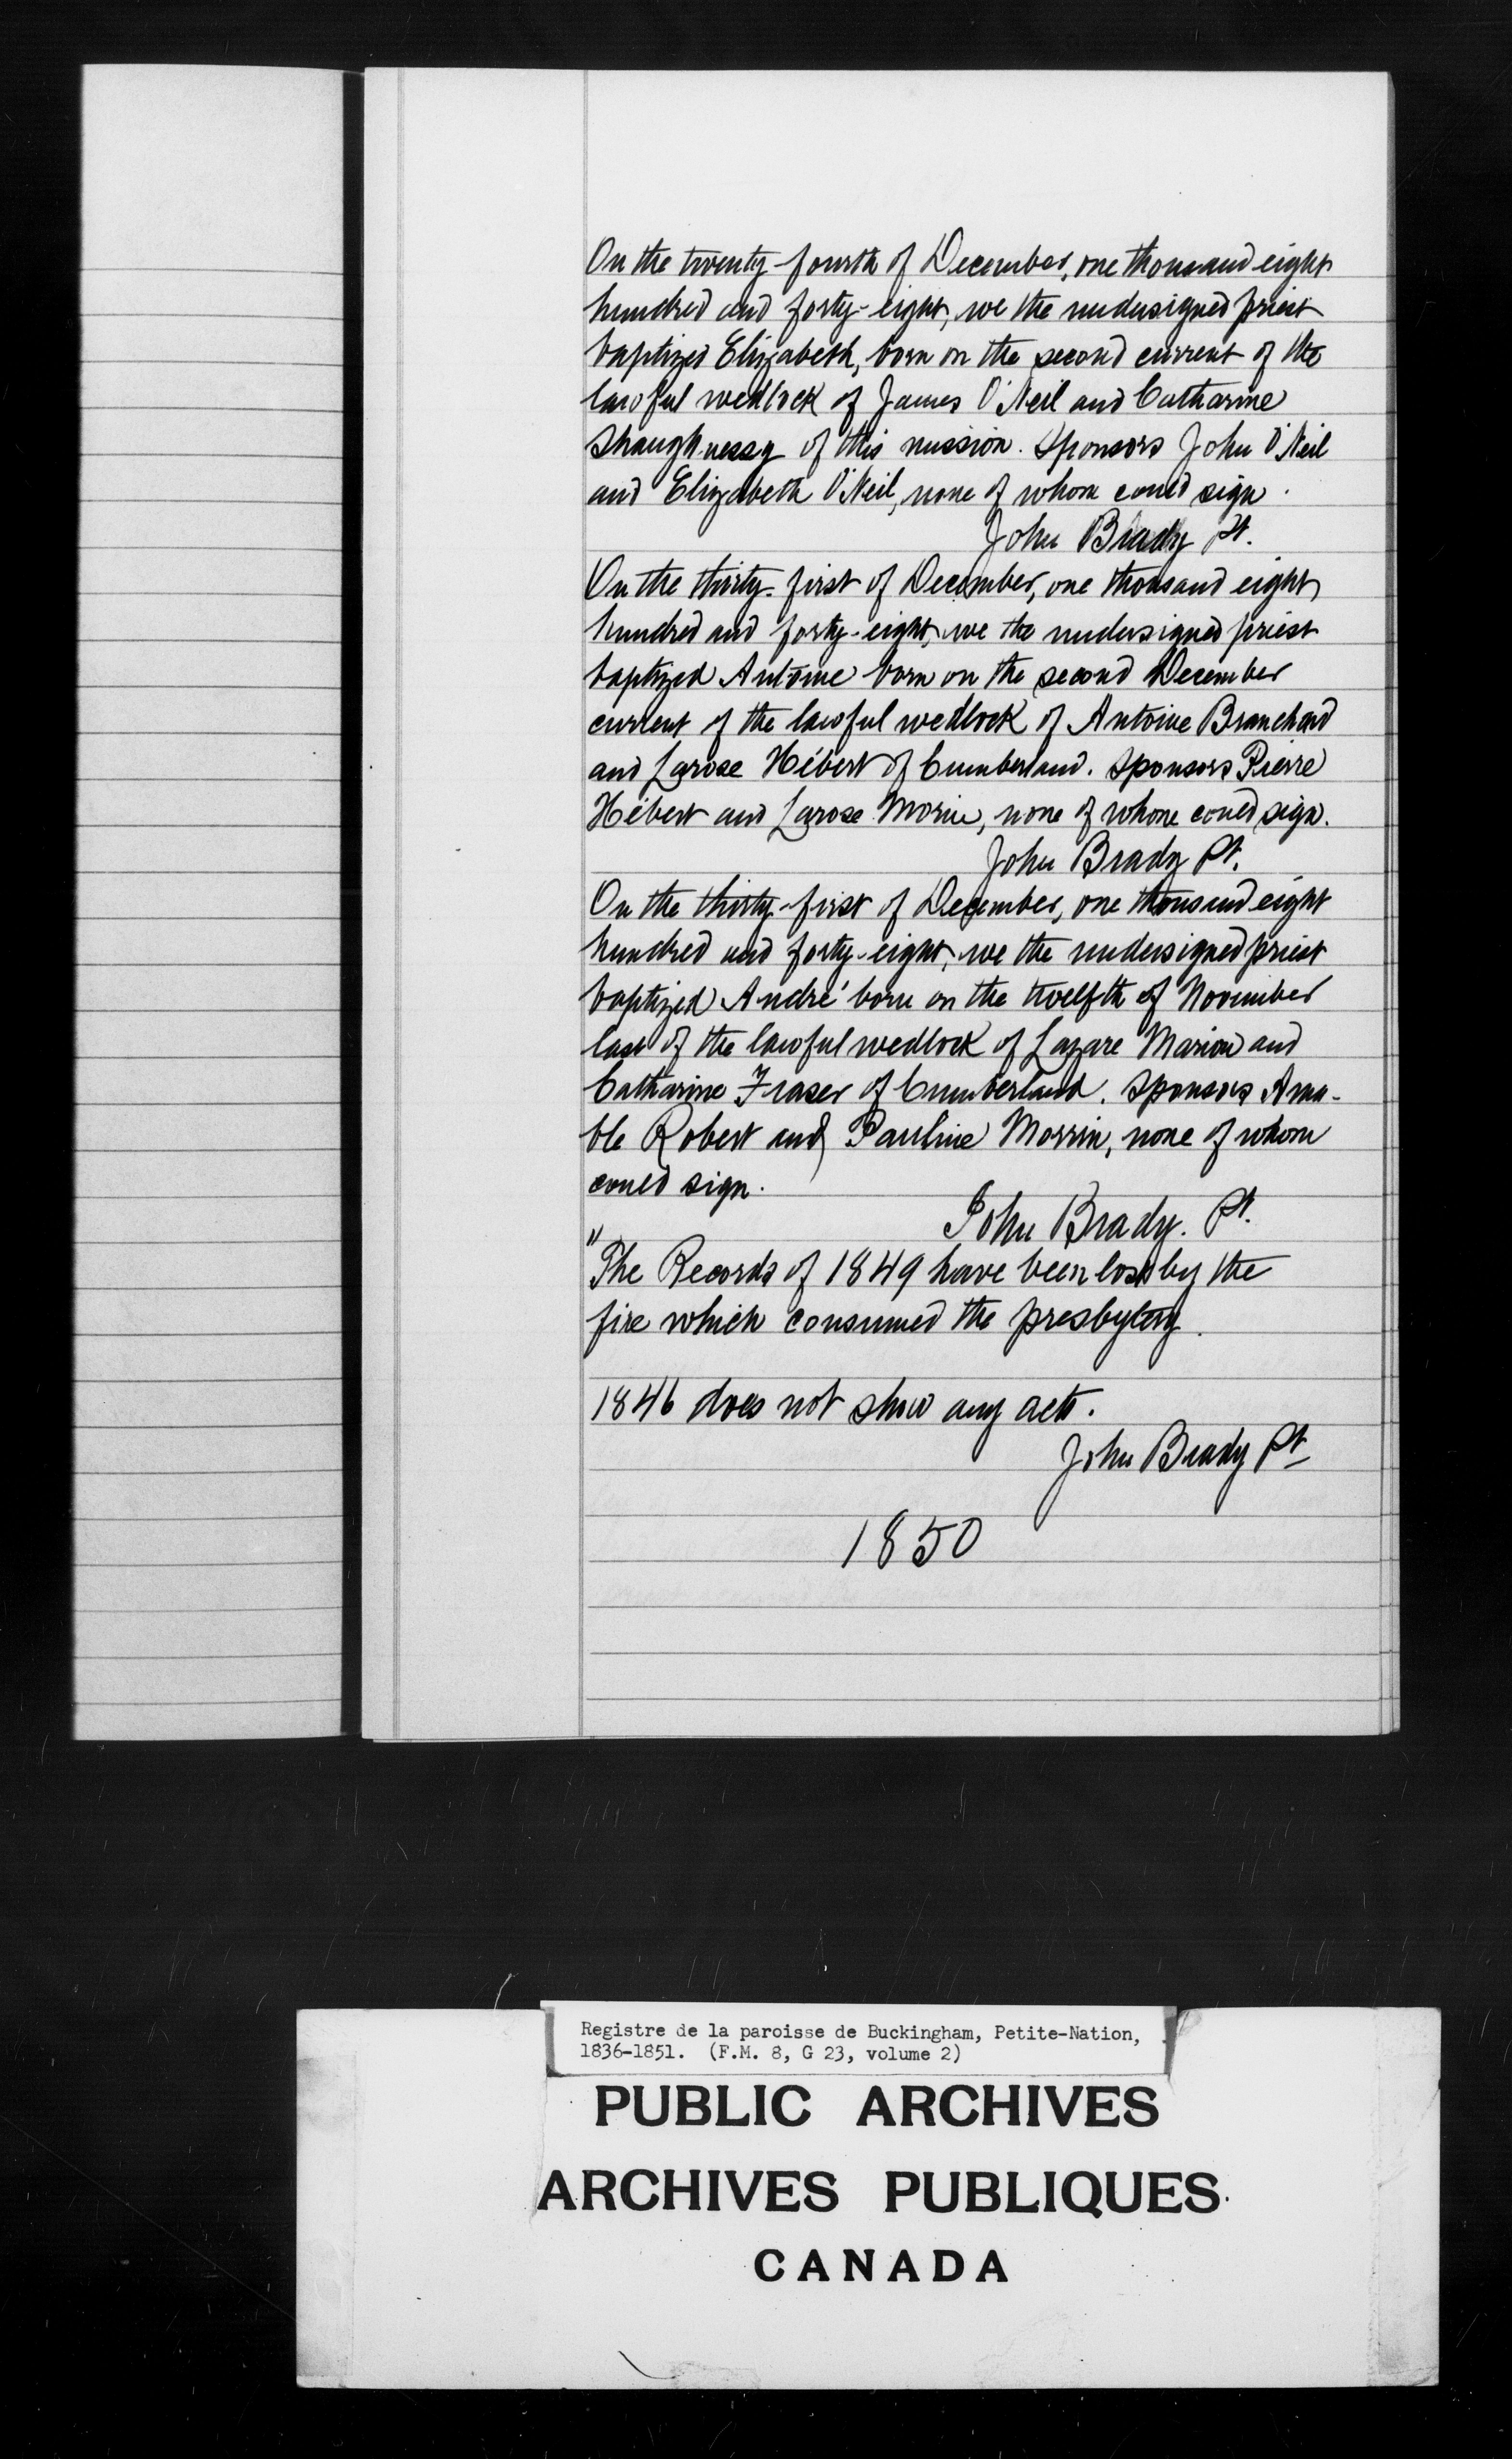 On the twenty-fourth of December, one thousand eight
hundred and forty-eight, we the undersigned priest
baptized Elizabeth, born on the second current of the
lawful wedlock of James O'Neil and Catharine
Shaughnessy of this mission. Sponsors John O'Neil
and Elizabeth O'Neil, none of whom could sign.
John Brady Pt.
On the thirty-first of December, one thousand eight
hundred and forty-eight, we the undersigned priest
baptized Antoine born on the second December
current of the lawful wedlock of Antoine Branchard
and Larose Hébert of Cumberland. Sponsors Pierre
Hébert and Larose Morin, none of whom could sign.
John Brady Pt.
On the thirty-first of December, one thousand eight
hundred and forty-eight, we the undersigned priest
baptized André born on the twelfth of November
last of the lawful wedlock of Lazare Marion and
Catharine Fraser of Cumberland. Sponsors Ama-
ble Robert and Pauline Morrin, none of whom
could sign.
John Brady. Pt.
"The Records of 1849 have been lost by the
fire which consumed the presbytery.
1846 does not show any acts.
John Brady Pt
1850
Registre de la paroisse de Buckingham, Petite-Nation,
1836-1851. (F.M. 8, G 23, volume 2)
PUBLIC ARCHIVES
ARCHIVES PUBLIQUES
CANADA